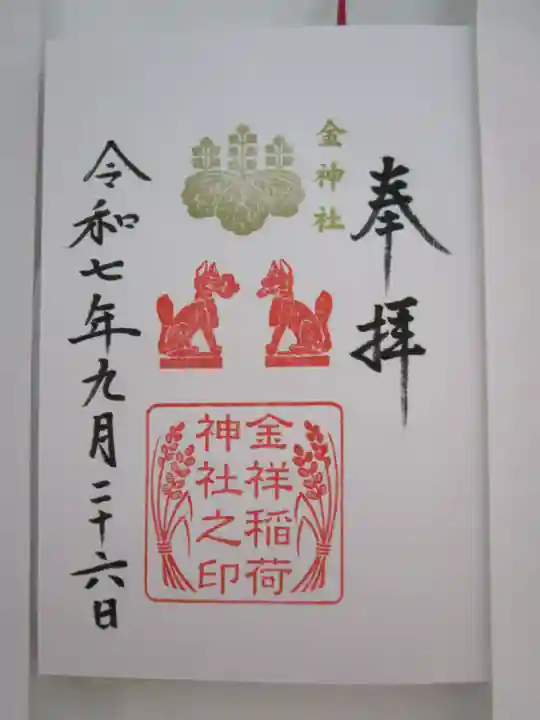 奉拝
金神社
金祥稲荷
神社之印
令和七年九月二十六日